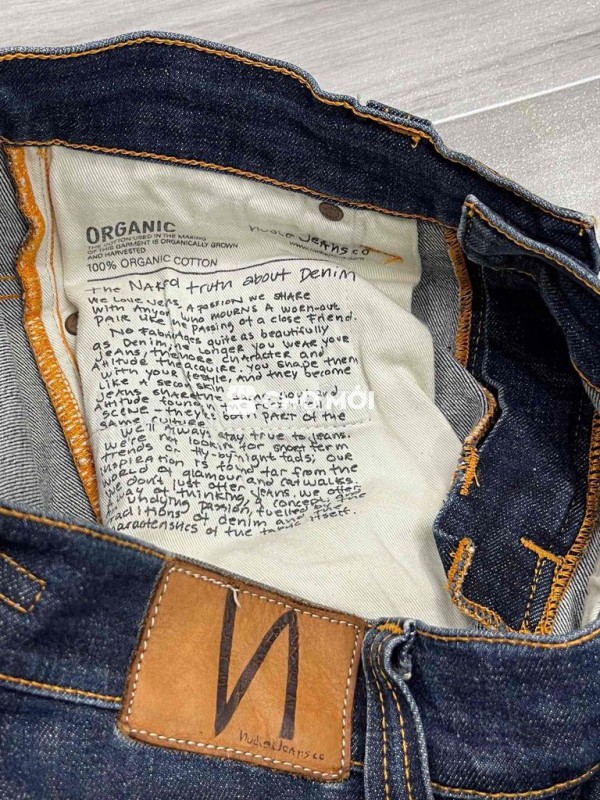 ORGANIC
THE COTTON USED IN THE MAKING
OF THIS GARMENT IS ORGANICALLY GROWN
AND HARVESTED
100% ORGANIC COTTON
nudie Jeans co
The Naked truth about Denim
We Love Jeans, A passion we share
with Anyone who mourns A worn-out
pair like the passing of a close Friend.
No Fabric ages quite as beautifully
as Denim. The Longer you wear your
Jeans the more character and
Attitude they acquire. You shape them
with your lifestyle, And they become
Like A second skin
Jeans share the
Attitude
scene - they're both part of the
same culture.
We'll always stay true to jeans.
We're not looking for short term
trends or fly-by night fads; our
inspiration is found far from the
world of glamour and catwalks.
We don't just offer jeans, we offer
a way of thinking, a concept, and
undying passion, fuelled by the
traditions of denim and the
characteristics of the fabric itself.
CHỢ MỚI
N
nudie Jeans co